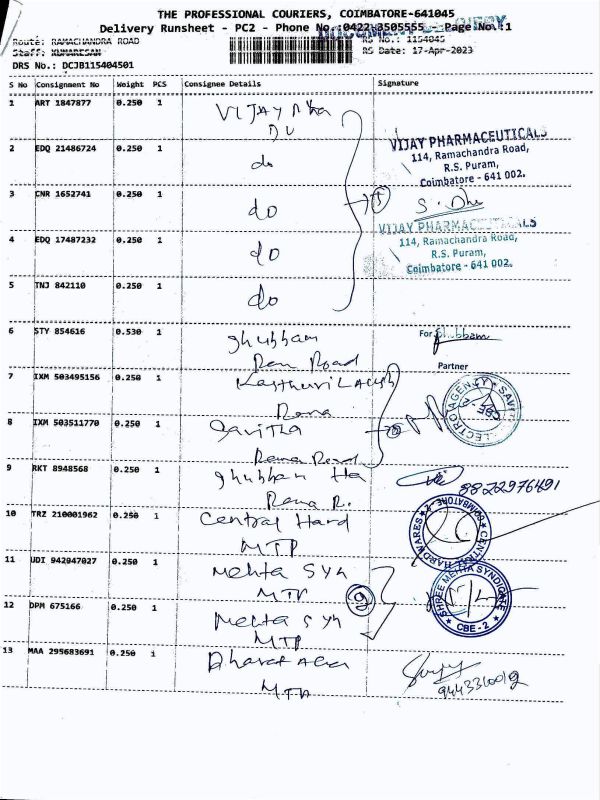 THE PROFESSIONAL COURIERS, COIMBATORE-641045
Delivery Runsheet - PC2 - Phone No.:0422-3505555 - Page No.:1
Route: RAMACHANDRA ROAD RS No.: 1154045
Staff: KUMARESAN RS Date: 17-Apr-2023
DRS No.: DCJB115404501
S No Consignment No Weight PCS Consignee Details Signature
1 ART 1847877 0.250 1 VIJAY
2 EDQ 21486724 0.250 1 do
VIJAY PHARMACEUTICALS
114, Ramachandra Road,
R.S. Puram,
Coimbatore - 641 002.
3 CNR 1652741 0.250 1 do
4 EDQ 17487232 0.250 1 do
VIJAY PHARMACEUTICALS
114, Ramachandra Road,
R.S. Puram,
Coimbatore - 641 002.
5 TNJ 842110 0.250 1 do
6 STY 854616 0.530 1 Shubham For Shubham
Ram Road
Partner
7 IXM 503495156 0.250 1 Kasthuri
Rama
8 IXM 503511770 0.250 1 Savitha
Rama Road
9 RKT 8948568 0.250 1 Shubham Ha 8822976491
Rama R.
10 TRZ 210001962 0.250 1 Central Hard
MTP
CENTRAL HARDWARES COIMBATORE-2
11 UDI 942047027 0.250 1 Mehta Syn
MTP
SHREE MEHTA SYNDICATE
CBE - 2
12 DPM 675166 0.250 1 Mehta Syn
MTP
13 MAA 295683691 0.250 1 Bharat
MTP